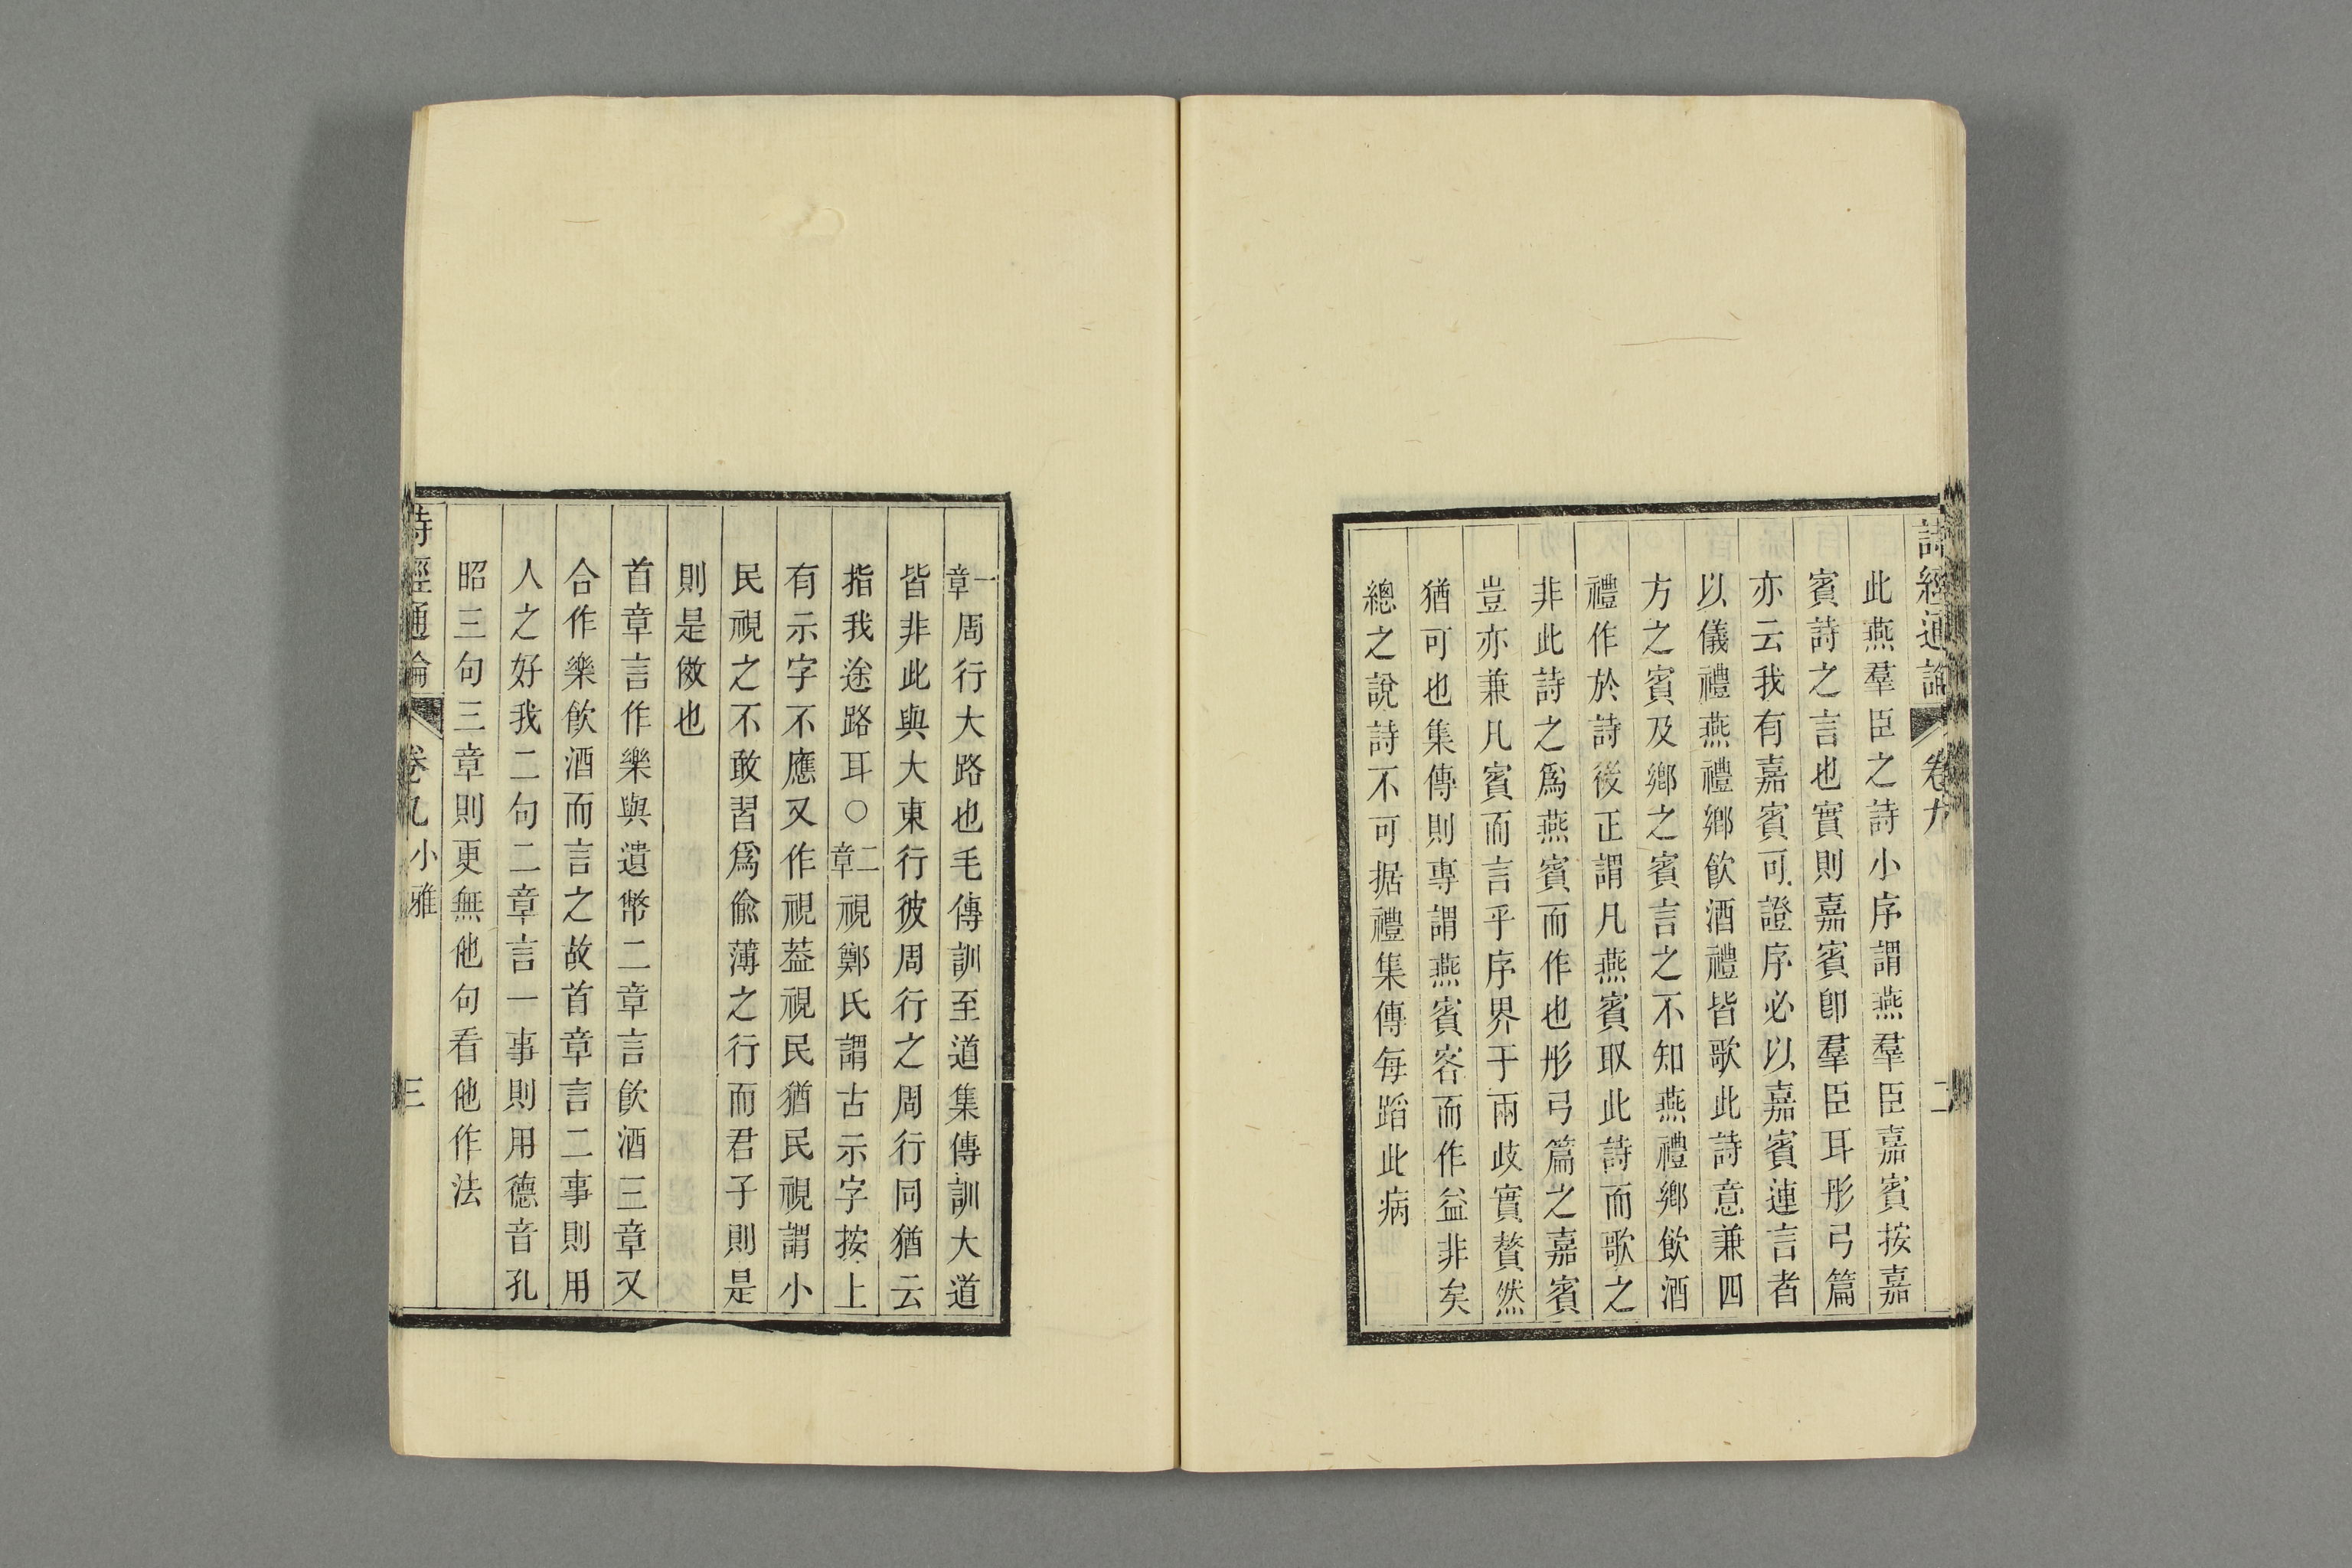 詩經通論 卷九 二
此燕羣臣之詩小序謂燕羣臣嘉賓按嘉
賓詩之言也實則嘉賓卽羣臣耳彤弓篇
亦云我有嘉賓可證序必以嘉賓連言者
以儀禮燕禮鄉飲酒禮皆歌此詩意兼四
方之賓及鄉之賓言之不知燕禮鄉飲酒
禮作於詩後正謂凡燕賓取此詩而歌之
非此詩之爲燕賓而作也彤弓篇之嘉賓
豈亦兼凡賓而言乎序界于兩歧實贅然
猶可也集傳則專謂燕賓客而作益非矣
總之說詩不可据禮集傳每蹈此病
一章周行大路也毛傳訓至道集傳訓大道
皆非此與大東行彼周行之周行同猶云
指我途路耳○二章視鄭氏謂古示字按上
有示字不應又作視葢視民猶民視謂小
民視之不敢習爲偷薄之行而君子則是
則是傚也
首章言作樂與遺幣二章言飲酒三章又
合作樂飲酒而言之故首章言二事則用
人之好我二句二章言一事則用德音孔
昭三句三章則更無他句看他作法
詩經通論 卷九小雅 三